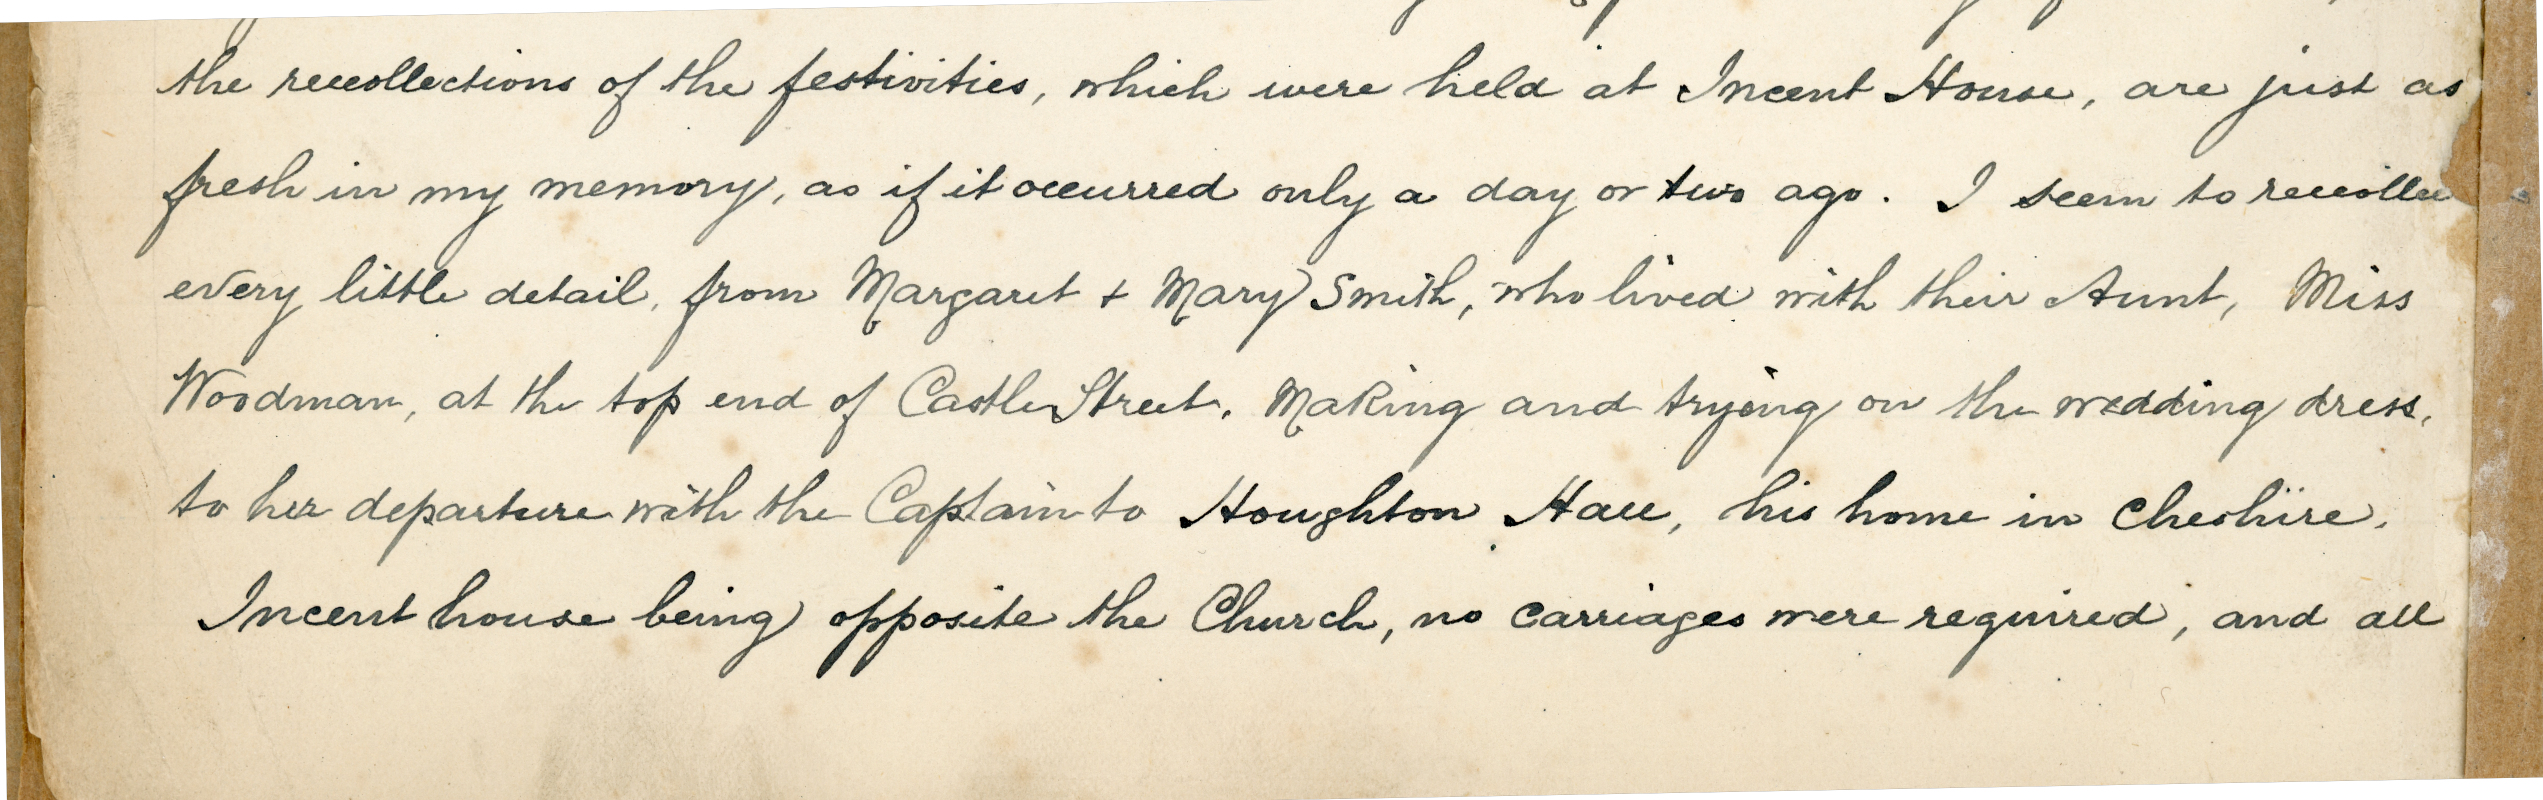 the recollections of the festivities, which were held at Incent House, are just as
fresh in my memory, as if it occurred only a day or two ago. I seem to recollec
every little detail, from Margaret + Mary Smith, who lived with their Aunt, Miss
Woodman, at the top end of Castle Street, Making and trying on the wedding dress,
to her departure with the Captain to Houghton Hall, his home in Cheshire.
Incent house being opposite the Church, no carriages were required, and all